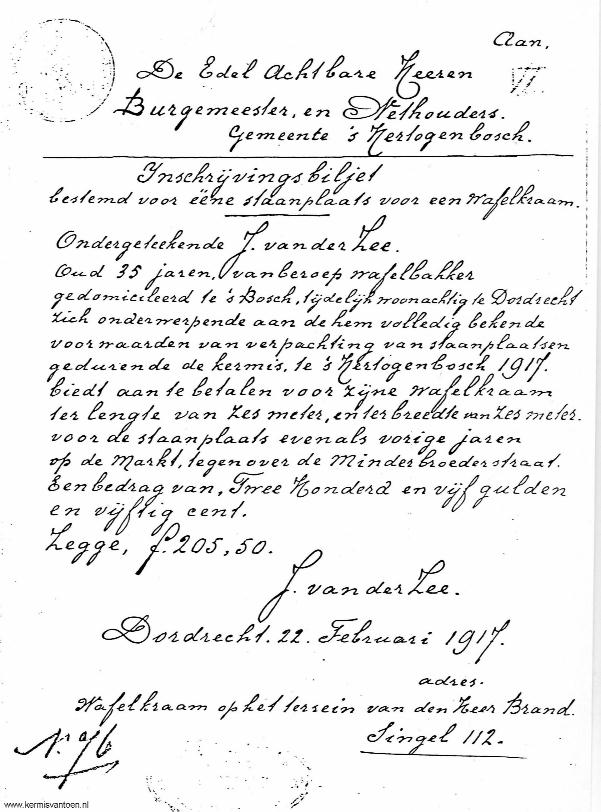 Aan,
De Edel Achtbare Heeren
VI.
Burgemeester, en Wethouders.
Gemeente 's Hertogenbosch.
Inschrijvingsbiljet
bestemd voor ééne staanplaats voor een Wafelkraam.
Ondergeteekende J. van der Zee.
Oud 35 jaren, van beroep wafelbakker
gedomicileerd te 's Bosch, tijdelijk woonachtig te Dordrecht
zich onderwerpende aan de hem volledig bekende
voorwaarden van verpachting van staanplaatsen
gedurende de kermis, te 's Hertogenbosch 1917.
biedt aan te betalen voor zijne wafelkraam
ter lengte van zes meter, en ter breedte van zes meter.
voor de staanplaats evenals vorige jaren
op de Markt, tegenover de Minderbroederstraat.
Een bedrag van, Twee Honderd en vijf gulden
en vijftig cent.
Zegge, f. 205,50.
J. van der Zee.
Dordrecht. 22. Februari 1917.
adres.
Wafelkraam op het terrein van den Heer Brand.
Singel 112.
www.kermisvantoen.nl